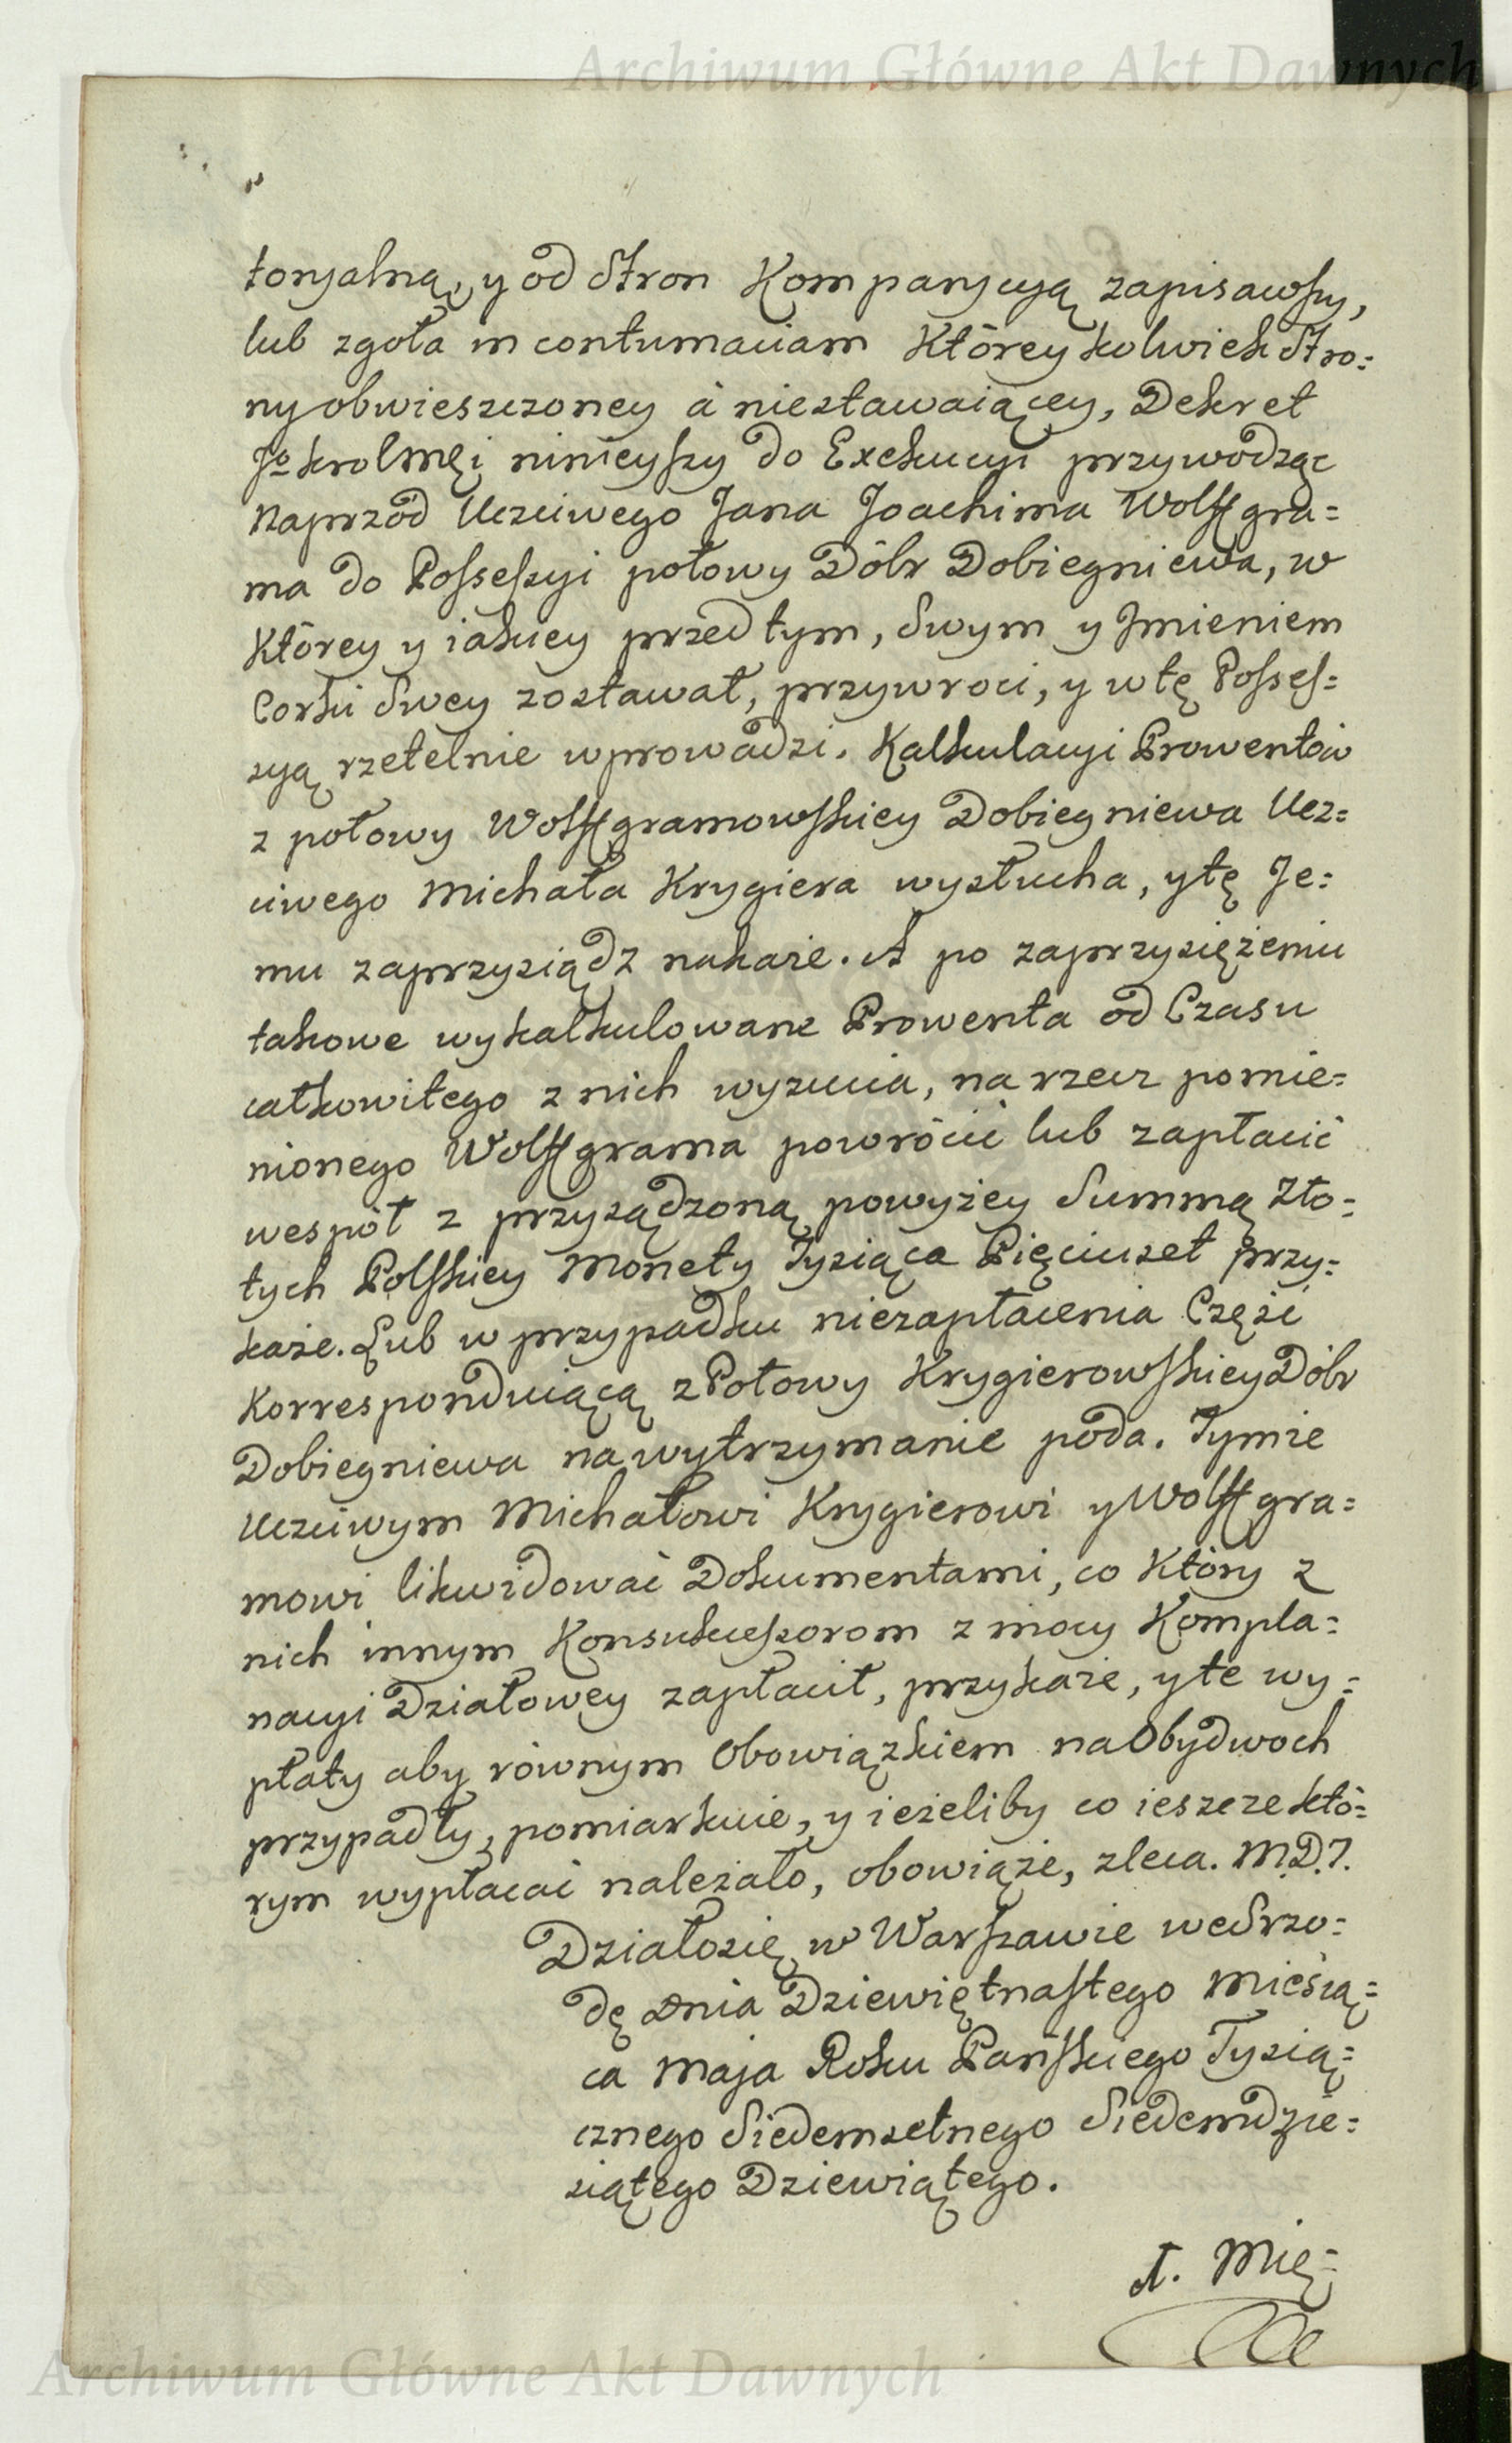 Archiwum Główne Akt Dawnych
toryalną, y od Stron Komparycyą zapisawszy,
lub zgoła in contumaciam Którey kolwiek Stro=
ny obwieszczoney à niestawaiącey, Dekret
Jo KrolMci ninieyszy do Exekucyi przywodząc
Naprzód Uczciwego Jana Joachima Wolffgra=
ma do Possessyi połowy Dóbr Dobiegniewa, w
Którey y iakiey przed tym, Swym y Imieniem
Corki Swey zostawał, przywroci, y w tę Posses=
syą rzetelnie wprowadzi. Kalkulacyi Prowentów
z połowy Wolffgramowskiey Dobiegniewa Ucz=
ciwego Michała Krygiera wysłucha, y tę Je=
mu zaprzysiądz nakaże. A po zaprzysiężeniu
takowe wykalkulowane Prowenta od Czasu
całkowitego z nich wyzucia, na rzecz pomie=
nionego Wolffgrama powrócić lub zapłacić
wespół z przysądzoną powyżey Summą Zło=
tych Polskiey Monety Tysiąca Pięciuset przy=
każe. Lub w przypadku niezapłacenia Część
Korresponduiącą z Połowy Krygierowskiey Dóbr
Dobiegniewa na wytrzymanie poda. Tymże
Uczciwym Michałowi Krygierowi y Wolffgra=
mowi likwidować Dokumentami, co Który z
nich innym Konsukcessorom z mocy Kompla=
nacyi Działowey zapłacił, przykaże, y te wy=
płaty aby równym Obowiązkiem na Obydwoch
przypadły, pomiarkuie, y ieżeliby co ieszcze któ=
rym wypłacać należało, obowiąże, zleca. M.D.J.
Działo się w Warszawie we Srzo=
dę Dnia Dziewiętnastego Miesią=
ca Maja Roku Pańskiego Tysią=
cznego Siedemsetnego Siedemdzie=
siątego Dziewiątego.
A. Mię=
Archiwum Główne Akt Dawnych